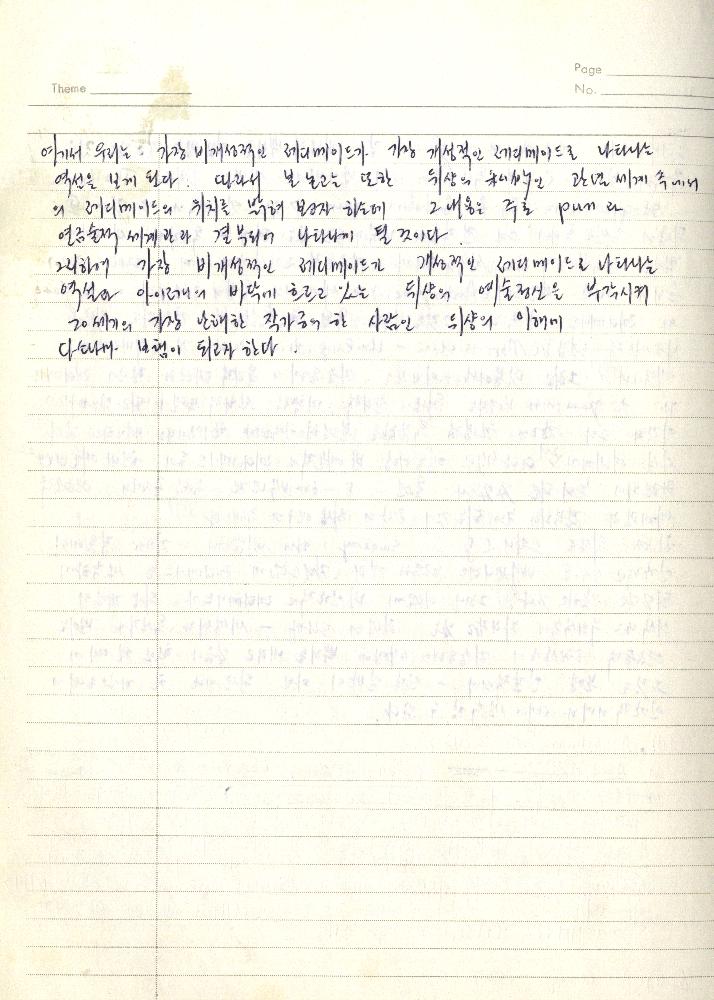 Page
Theme
No.
여기서 우리는 가장 비개성적인 레디메이드가 가장 개성적인 레디메이드로 나타나는
역설을 보게 된다. 따라서 본 논고는 또한 뒤샹의 관념세계 속에서
의 레디메이드의 위치를 밝혀 보고자 하는데 그 내용은 주로 pun과
연금술적 세계관과 결부되어 나타나게 될 것이다.
그리하여 가장 비개성적인 레디메이드가 개성적인 레디메이드로 나타나는
역설과 아이러니의 바닥에 흐르고 있는 뒤샹의 예술정신을 부각시켜
20세기의 가장 난해한 작가중의 한 사람인 뒤샹의 이해에
다소나마 보탬이 되고자 한다.